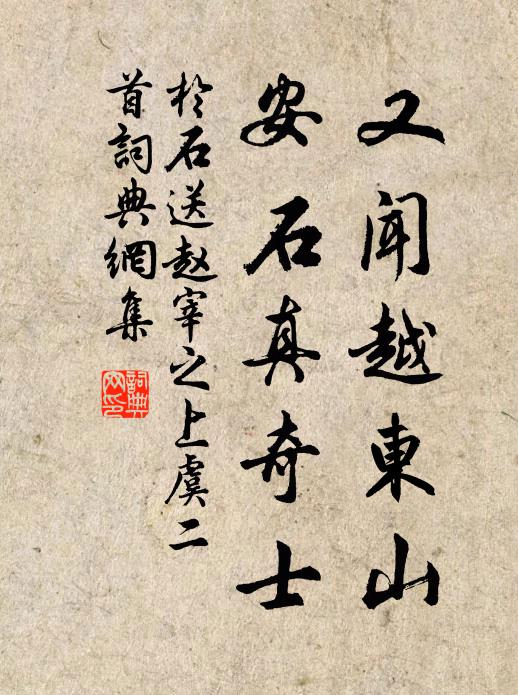 又闻越東山
安石真奇士
於石送赵宰之上虞二
首詞典網集
詞典
网印